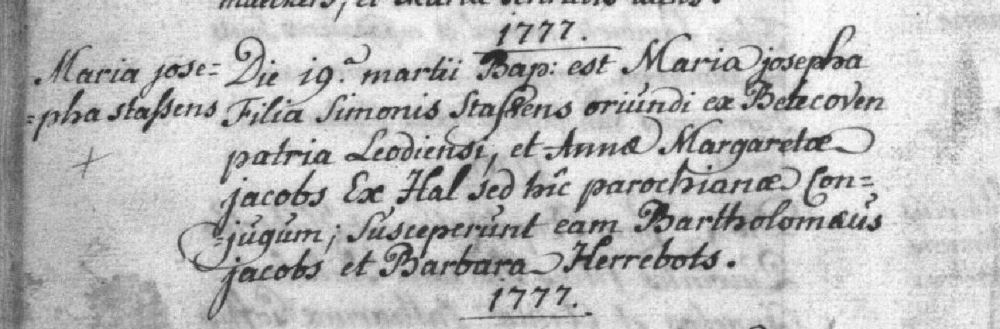 1777.
Maria jose=
=pha staſsens
Die 19.a martii Bap: est Maria josepha
Filia Simonis Staſsens oriundi ex Betecoven
patria Leodiensi, et Annæ Margaretæ
jacobs Ex Hal sed hîc parochianæ Con=
=jugum; Susceperunt eam Bartholomæus
jacobs et Barbara Herrebots.
1777.